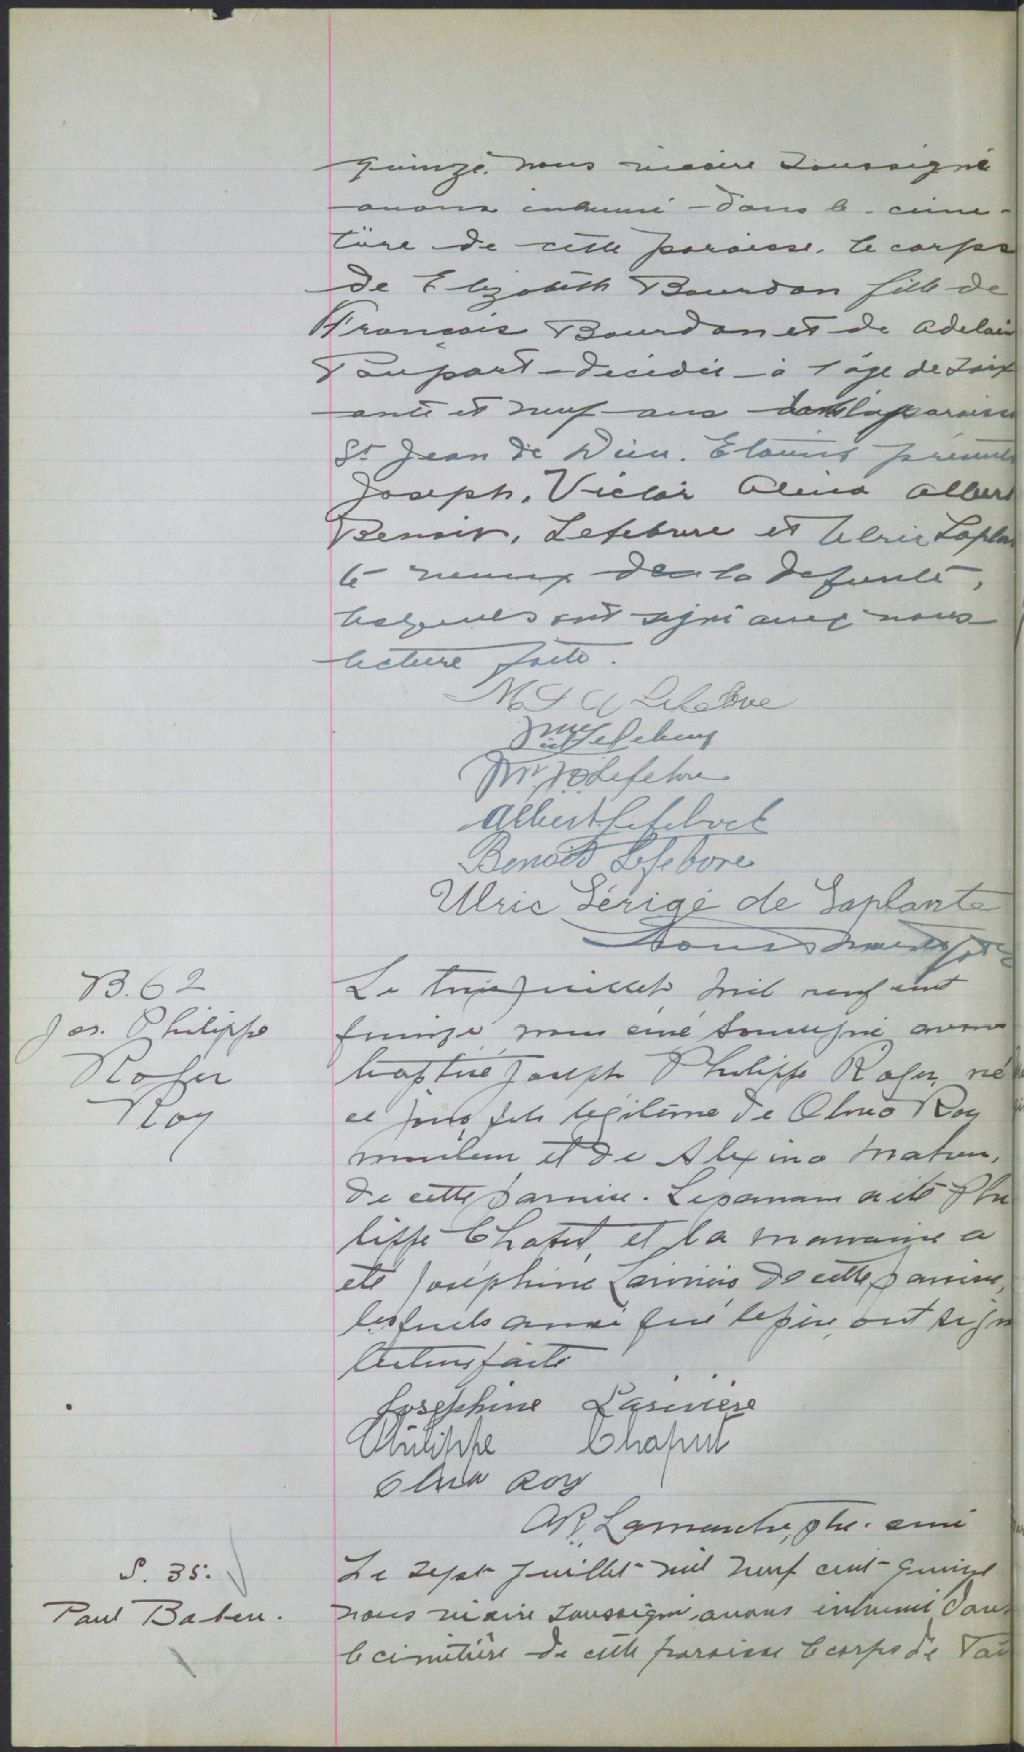 quinze nous vicaire soussigné
avons inhumé dans le cime-
tière de cette paroisse, le corps
de Elizabeth Bourdon fille de
François Bourdon et de Adelaï
Poupart décédée à l'âge de soix
ante et neuf ans dans la paroisse
St Jean de Dieu. Etaient présents
Joseph, Victor Alina Albert
Benoit, Lefebvre et Ulric Laplan
te neveux de la defunte,
lesquels ont signé avec nous
lecture faite.
M L A Lefebvre
Lefebvre
Lefebvre
Albert Lefebvre
Benoit Lefebvre
Ulric Sérigé de Laplante
B. 62
Jos. Philippe
Roger
Roy
Le trois juillet mil neuf cent
quinze, nous curé soussigné avons
baptisé Joseph Philippe Roger, né
ce jour, fils légitime de Olina Roy
et de Alexina
de cette paroisse. Le parrain a été Phi
lippe Chaput, et la marraine a
été Joséphine Larivière de cette paroisse,
lesquels ainsi que le père ont sign
lecture faite
Josephine Larivière
Philippe Chaput
Roy
ptre. curé
S. 35.
Paul Babeu.
Le sept juillet mil neuf cent quinze
nous vicaire soussigné, avons inhumé dans
le cimetière de cette paroisse le corps de Pau